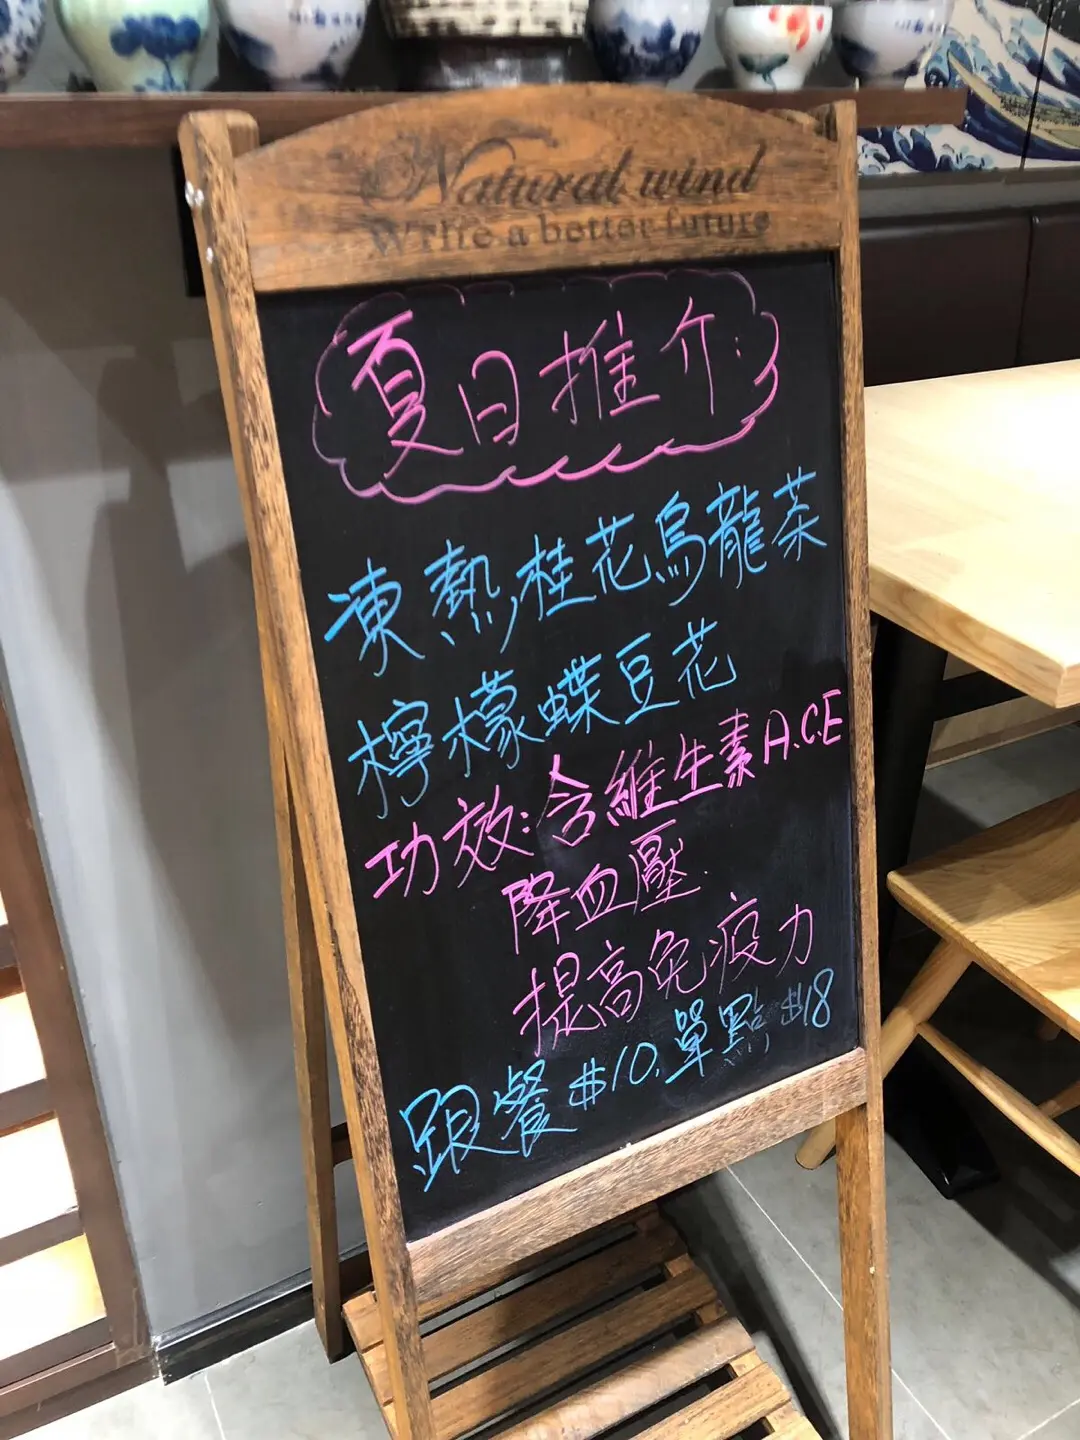 Natural wind
Wrlie a better future
夏日推介:
凍熱桂花烏龍茶
檸檬蝶豆花
功效:含維生素A.C.E
降血壓.
提高免疫力
跟餐$10,單點$18